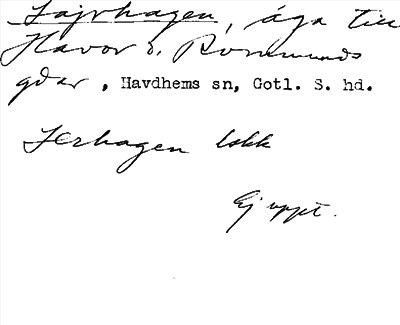 Lajrhagen, äga till
Havor o. Rommunds
gdar, Havdhems sn, Gotl. S. hd.
Lerhagen lokk
Ej uppt.